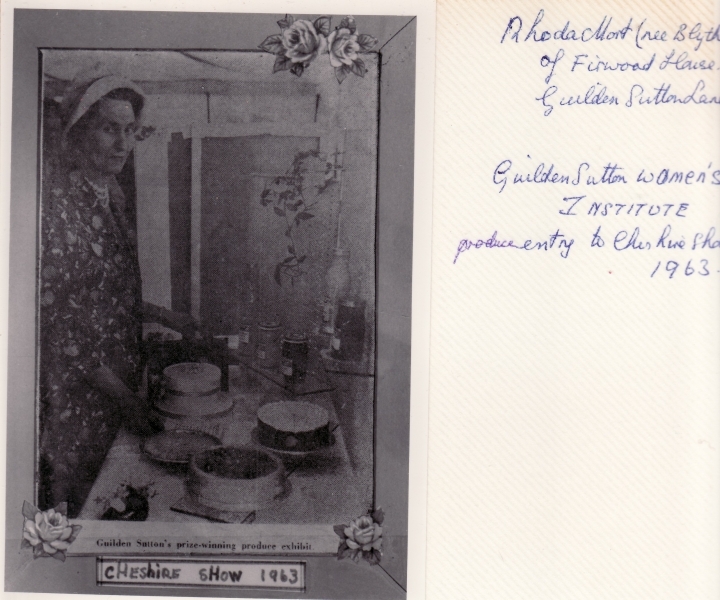 Guilden Sutton's prize-winning produce exhibit
CHESHIRE SHOW 1963
Rhoda Mort (nee Blyth
of Firwood House
Guilden Sutton Lan
Guilden Sutton WOMEN'S
INSTITUTE
produce entry to Cheshire Sho
1963.